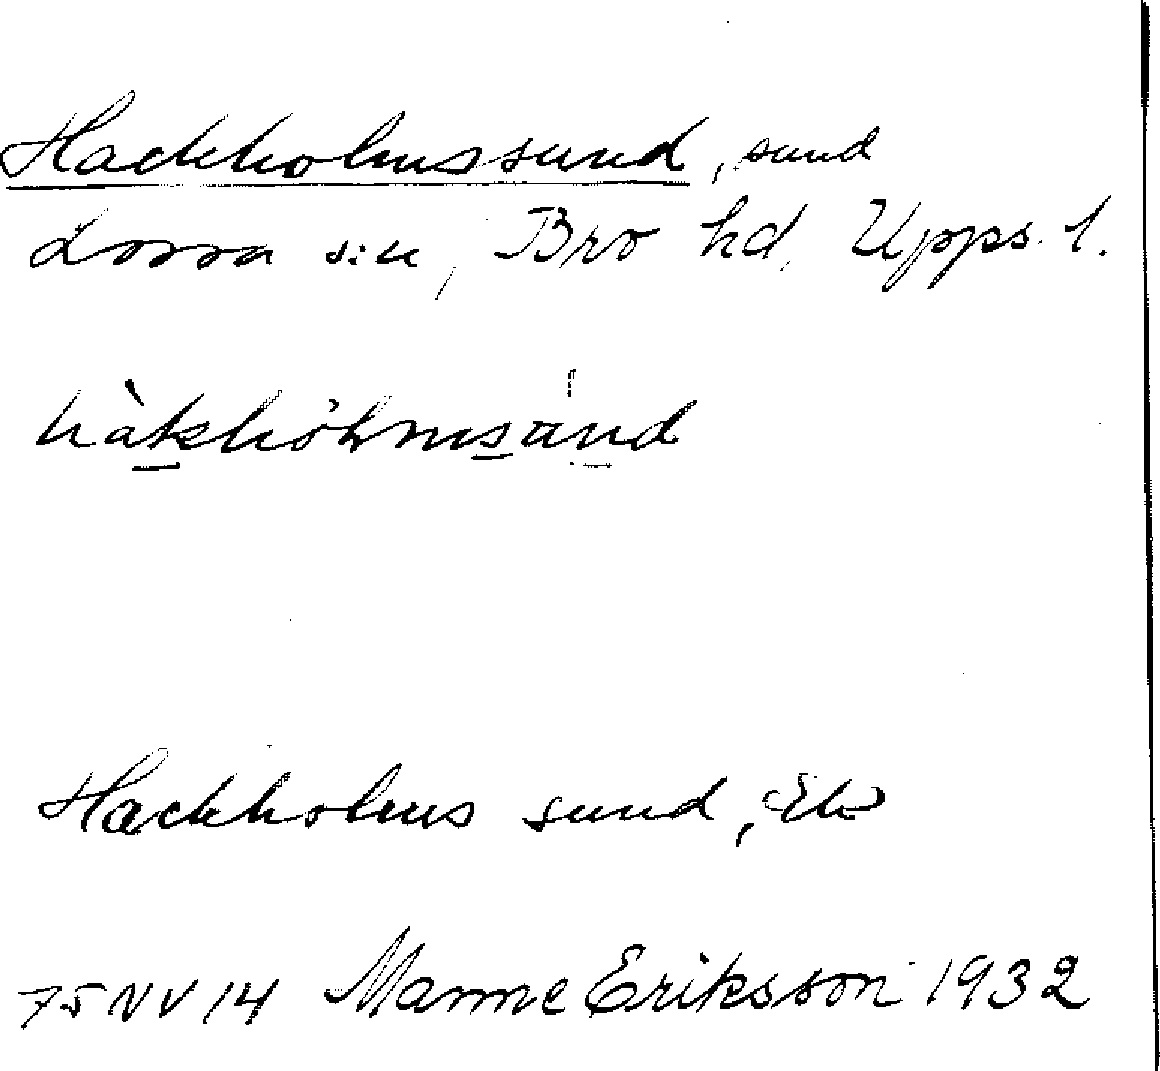 Hackholmssund, sund
Lossa s:n, Bro hd, Upps. l.
Hackholms sund, Ek
75 NV 14 Manne Eriksson 1932